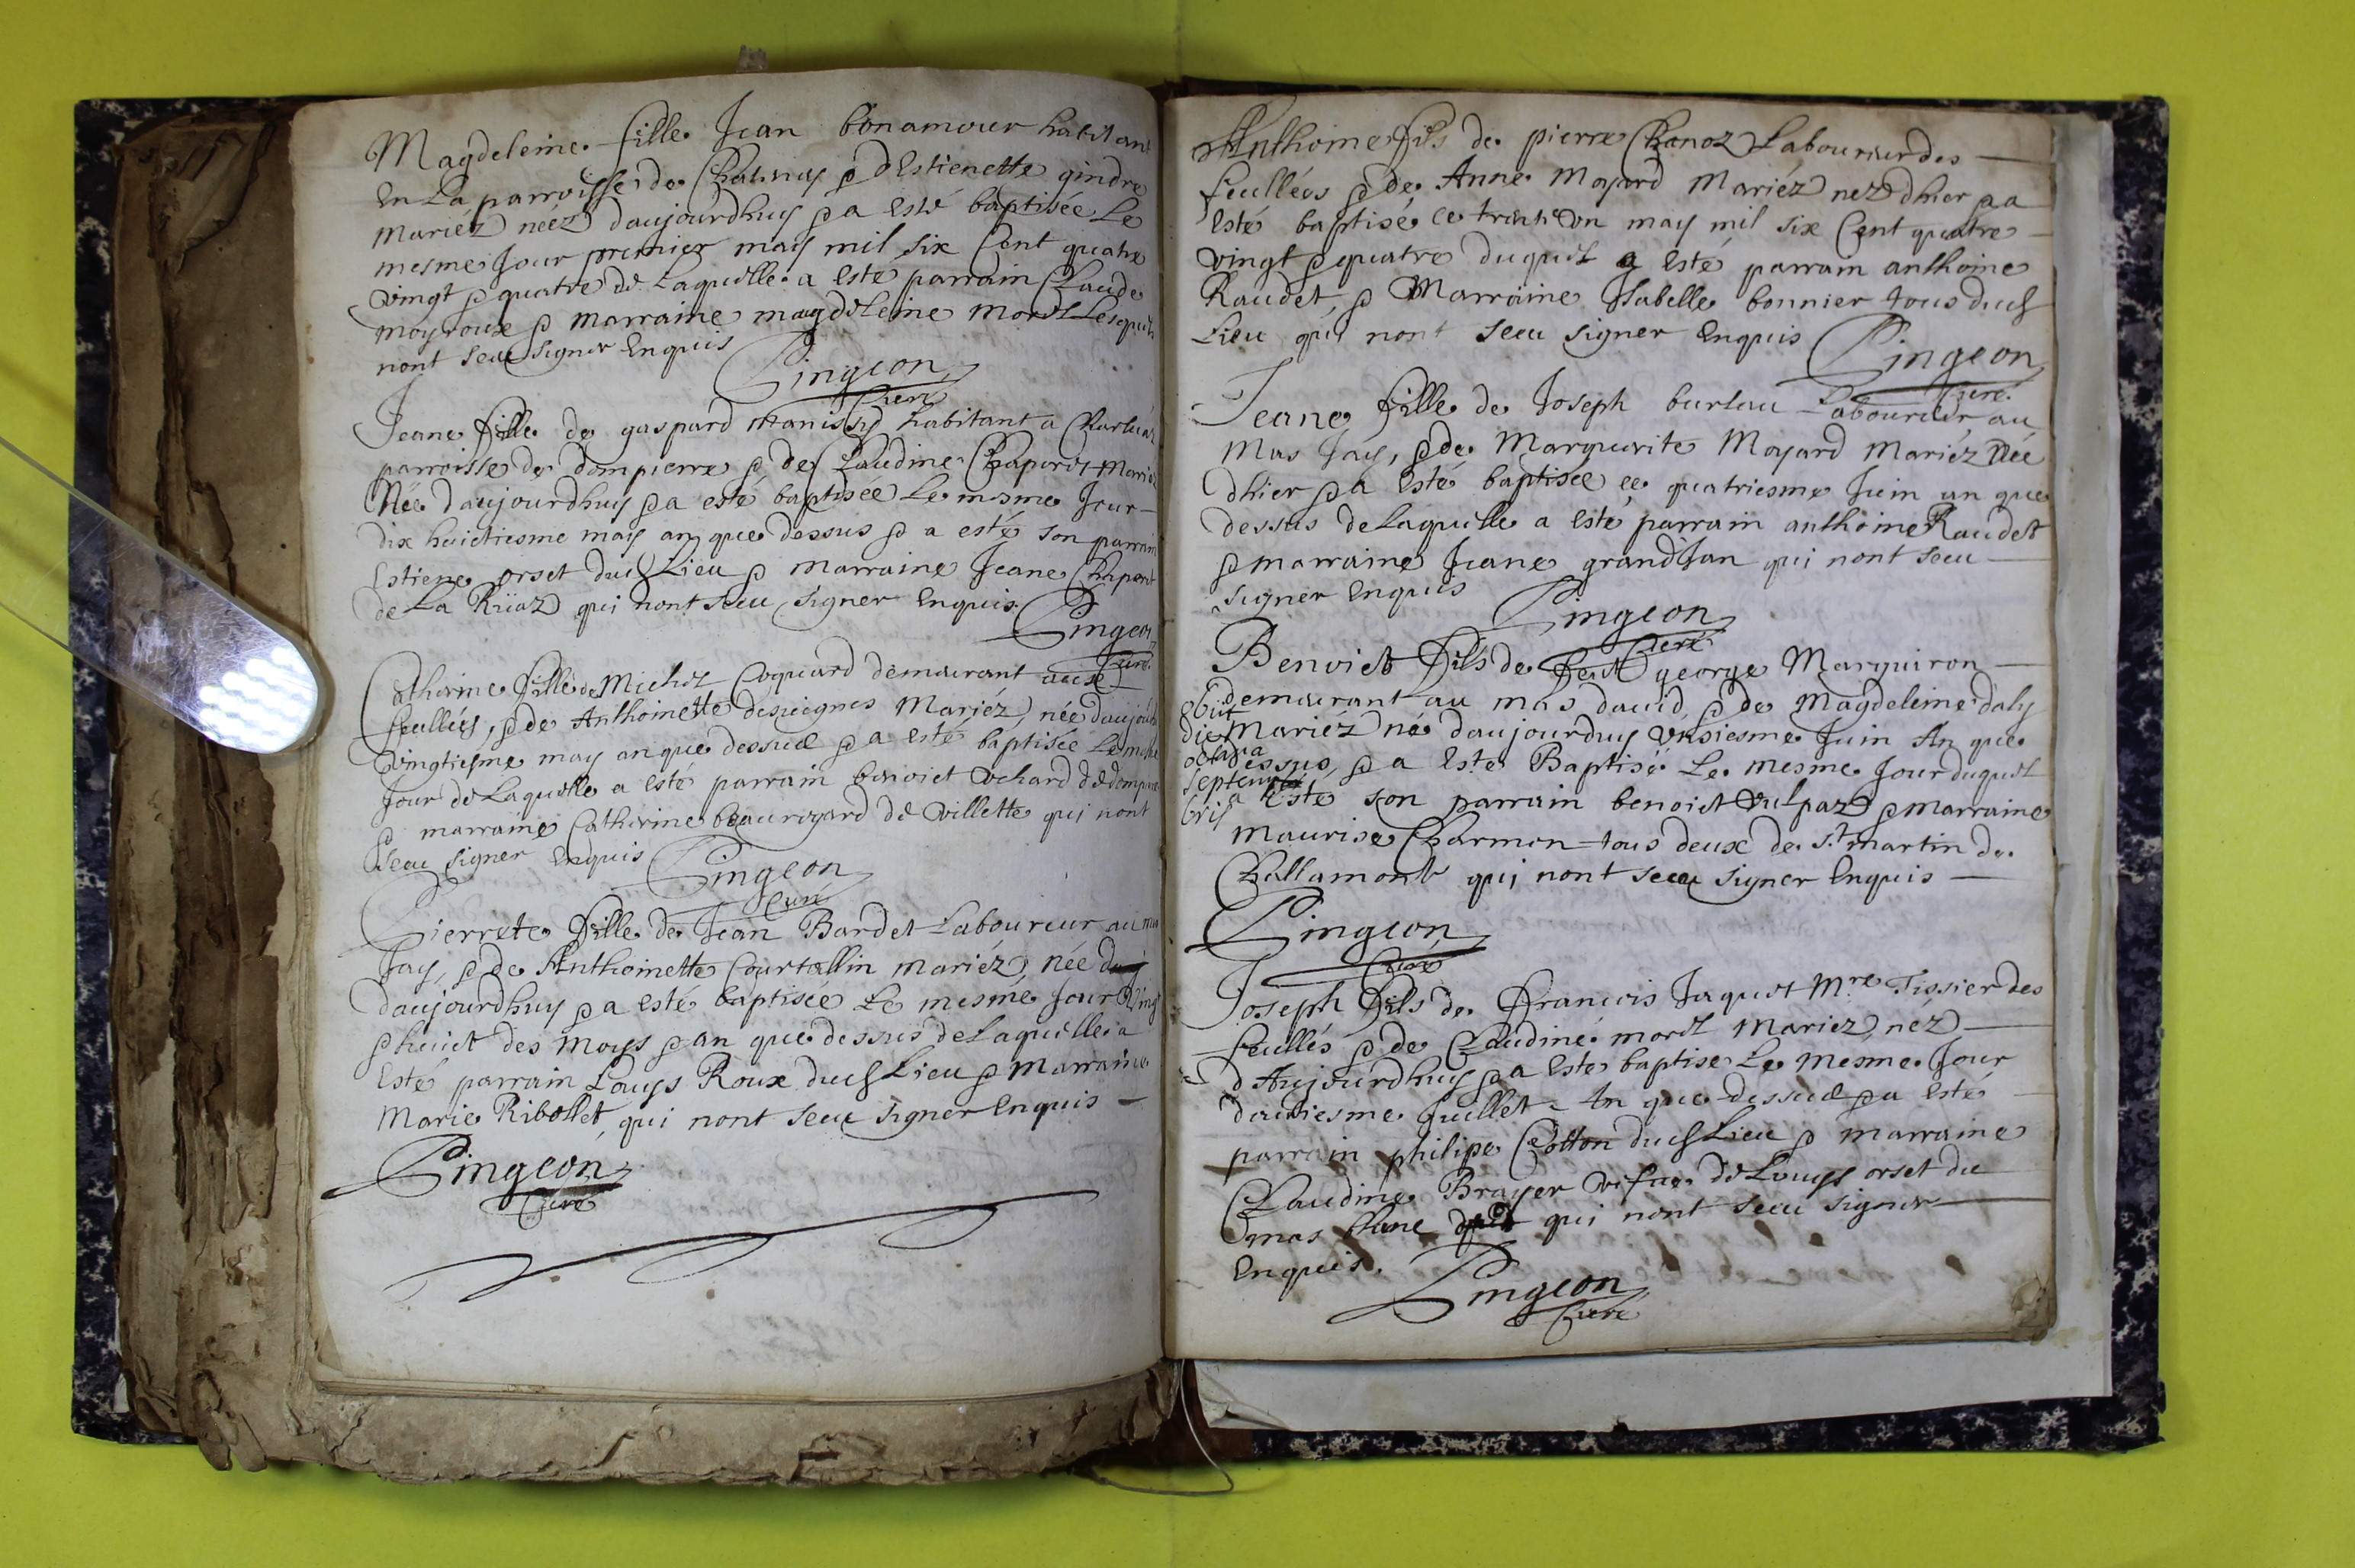 Magdeleine fille Jean bonamour habitant
En La parroisse de Chatenay & dEstienette gindre
Mariéz neéz daujourdhuy & a esté baptisée Le
mesme Jour premier may mil six Cent quatre
vingt & quatre de Laquelle a esté parrain Claude
moyroux & marraine magdeleine morel Lesquels
nont sceu signer Enquis
Pingeon
Curé
Jeane fille de gaspard habitant a
parroisse de dompierre & de Claudine Chaporet Mariéz
Née daujourdhuy & a esté baptisée Le mesme Jour
dix huictiesme may an que dessus & a esté son parrain
Estiene orset dud Lieu & marraine Jeane
de La Rüaz qui nont sceu signer Enquis
Pingeon
Curé
Catherine fille de Michel Coquard demeurant aux
feullées, & de Anthoinette Mariéz, née daujourdh
vingtiesme may an que dessus & a esté baptisée Le mesme
Jour de Laquelle a esté parrain benoict vchard de dompierre
& marraine Catherine beauregard de villette qui nont
sceu signer Enquis
Pingeon
Curé
Pierrete fille de Jean Bardet Laboureur au mas
Jay, & de Anthoinette Courtallin mariéz, née
daujourdhuy & a esté baptisée Le mesme Jour vingt
& huict des moys & an que dessus de Laquelle a
Esté parrain Louys Roux dud Lieu & Marraine
Marie Ribollet, qui nont sceu signer Enquis
Pingeon
Curé
Anthoine fils de pierre Chanoz Laboureur des
feullées & de Anne Moyard Mariéz nez dhier & a
Esté baptisé ce trante vn may mil six Cent quatre
vingt & quatre duquel a esté parrain anthoine
Raudet, & Marraine Isabelle bonnier tous dud
Lieu qui nont sceu signer Enquis
Pingeon
Curé
Jeane fille de Joseph burlau Laboureur au
Mas Jay, & de Marguerite Moyard Mariéz Née
dhier & a Esté baptisée ce quatriesme Juin an que
dessus de Laquelle a esté parrain anthoine Raudet
& marraine Jeane grandJan qui nont sceu
signer Enquis
Pingeon
Curé
Benoict fils de feu george Marguiron
demeurant au mas dauid & de Magdeleine daly
Mariéz né daujourduy vnsiesme Juin An que
dessus, & a Esté Baptisé Le mesme Jour duquel
a Esté son parrain benoict Vulpaz & marraine
Maurise Charmon tous deux de st martin de
Challamont qui nont sceu signer Enquis
obiit
die
octava
septem
bris
Pingeon
Curé
Joseph fils de francois Jaquet Mre Tissier des
feullés & de Claudine morel Mariez, néz
dAujourdhuy & a Este baptise Le mesme Jour
dousiesme Juillet An que dessus & a Esté
parrain philipe Cotton dud Lieu & marraine
Claudine Brayer vefue de Louys orset du
mas qui nont sceu signer
Enquis.
Pingeon
Curé